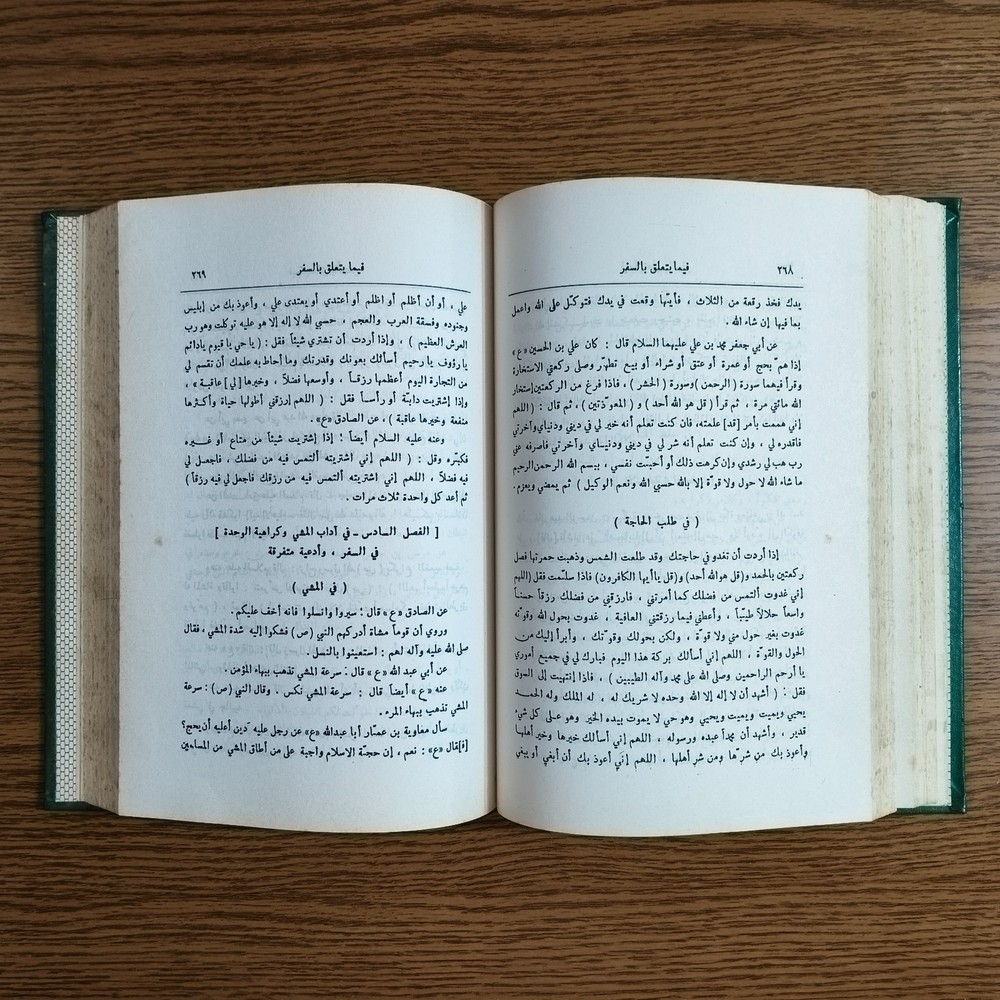 ٢٦٨
فيما يتعلق بالسفر
يدك فخذ رقعة من الثلاث ، فأيتها وقعت في يدك فتوكّل على الله واعمل
بما فيها إن شاء الله .
عن أبي جعفر محمد بن علي عليهما السلام قال : كان علي بن الحسين «ع»
إذا همّ بحج أو عمرة أو عتق أو شراء أو بيع تطهّر وصل ركعتي الاستخارة
وقرأ فيهما سورة ( الرحمن ) وسورة ( الحشر ) ، فاذا فرغ من الركعتين إستخار
الله مائتي مرة ، ثم قرأ ( قل هو الله أحد ) و ( المعوّذتين ) ، ثم قال : ( اللهم
إني هممت بأمر [قد] علمته، فان كنت تعلم أنه خير لي في ديني ودنياي وآخرتي
فاقدره لي ، وإن كنت تعلم أنه شر لي في ديني ودنياي وآخرتي فاصرفه عني
رب هب لي رشدي وإن كرهت ذلك أو أحبت نفسي ، ببسم الله الرحمن الرحيم
ما شاء الله لا حول ولا قوة إلا بالله حسبي الله ونعم الوكيل ) ثم يمضي ويعزم .
( في طلب الحاجة )
إذا أردت أن تغدو في حاجتك وقد طلعت الشمس وذهبت حمرتها فصل
ركعتين بالحمد و(قل هو الله أحد) و(قل يا أيها الكافرون) فاذا سلّمت فقل (اللهم
إني غدوت ألتمس من فضلك كما أمرتني ، فارزقني من فضلك رزقاً حسناً
واسعاً حلالاً طيّباً ، وأعطني فيما رزقتني العافية ، غدوت بحول الله وقوته
غدوت بغير حول مني ولا قوّة ، ولكن بحولك وقوّتك ، وأبرأ إليك من
الحول والقوّة ، اللهم إني أسألك بركة هذا اليوم فبارك لي في جميع أموري
يا أرحم الراحمين وصلى الله على محمد وآله الطيبين ) ، فاذا إنتهيت إلى السوق
فقل : ( أشهد أن لا إله إلا الله وحده لا شريك له ، له الملك وله الحمد
يحيي ويميت ويميت ويحيي وهو حي لا يموت بيده الخير وهو على كل شيء
قدير ، وأشهد أن محمداً عبده ورسوله ، اللهم إني أسألك خيرها وخير أهلها
وأعوذ بك من شرّها ومن شر أهلها ، اللهم إنّي أعوذ بك أن أبغي أو يبغى
فيما يتعلق بالسفر
٢٦٩
علي ، أو أن أظلم أو اظلم أو أعتدي أو يعتدى علي ، وأعوذ بك من إبليس
وجنوده وفسقة العرب والعجم ، حسبي الله لا إله إلا هو عليه توكلت وهو رب
العرش العظيم ) ، وإذا أردت أن تشتري شيئاً فقل : ( يا حي يا قيوم يا دائم
يا رؤوف يا رحيم أسألك بعونك وقدرتك وما أحاط به علمك أن تقسم لي
من التجارة اليوم أعظمها رزقاً ، وأوسعها فضلاً ، وخيرها [لي] عاقبة» ،
وإذا إشتريت دابّة أو رأساً فقل : ( اللهم إرزقني أطولها حياة وأكثرها
منفعة وخيرها عاقبة ) ، عن الصادق «ع» .
وعنه عليه السلام أيضاً : إذا إشتريت شيئاً من متاع أو غيره
فكبّره وقل : ( اللهم إني اشتريته ألتمس فيه من فضلك ، فاجعل لي
فيه فضلاً ، اللهم إني اشتريته ألتمس فيه من رزقك فاجعل لي فيه رزقاً )
ثم أعد كل واحدة ثلاث مرات .
[ الفصل السادس ـ في آداب المشي وكراهية الوحدة ]
في السفر ، وأدعية متفرقة
( في المشي )
عن الصادق «ع» قال : سيروا وانسلوا فانه أخف عليكم .
وروي أن قوماً مشاة أدركهم النبي (ص) فشكوا إليه شدة المشي ، فقال
صلى الله عليه وآله لهم : استعينوا بالنسل .
عن أبي عبد الله «ع» قال : سرعة المشي تذهب ببهاء المؤمن .
عنه «ع» أيضاً قال : سرعة المشي نكس . وقال النبي (ص) : سرعة
المشي تذهب ببهاء المرء .
سأل معاوية بن عمّار أبا عبد الله «ع» عن رجل عليه دَين أعليه أن يحج؟
[ف]قال «ع» : نعم ، إن حجّة الاسلام واجبة على من أطاق المشي من المسلمين